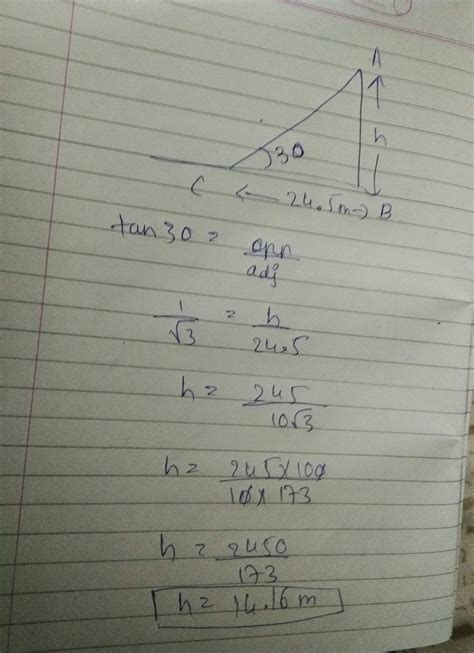 A
h
30
C ← 24.5m → B
tan 30 = opp / adj
1 / √3 = h / 24.5
h = 245 / 10√3
h = 245 × 100 / 10 × 173
h = 2450 / 173
h = 14.16 m